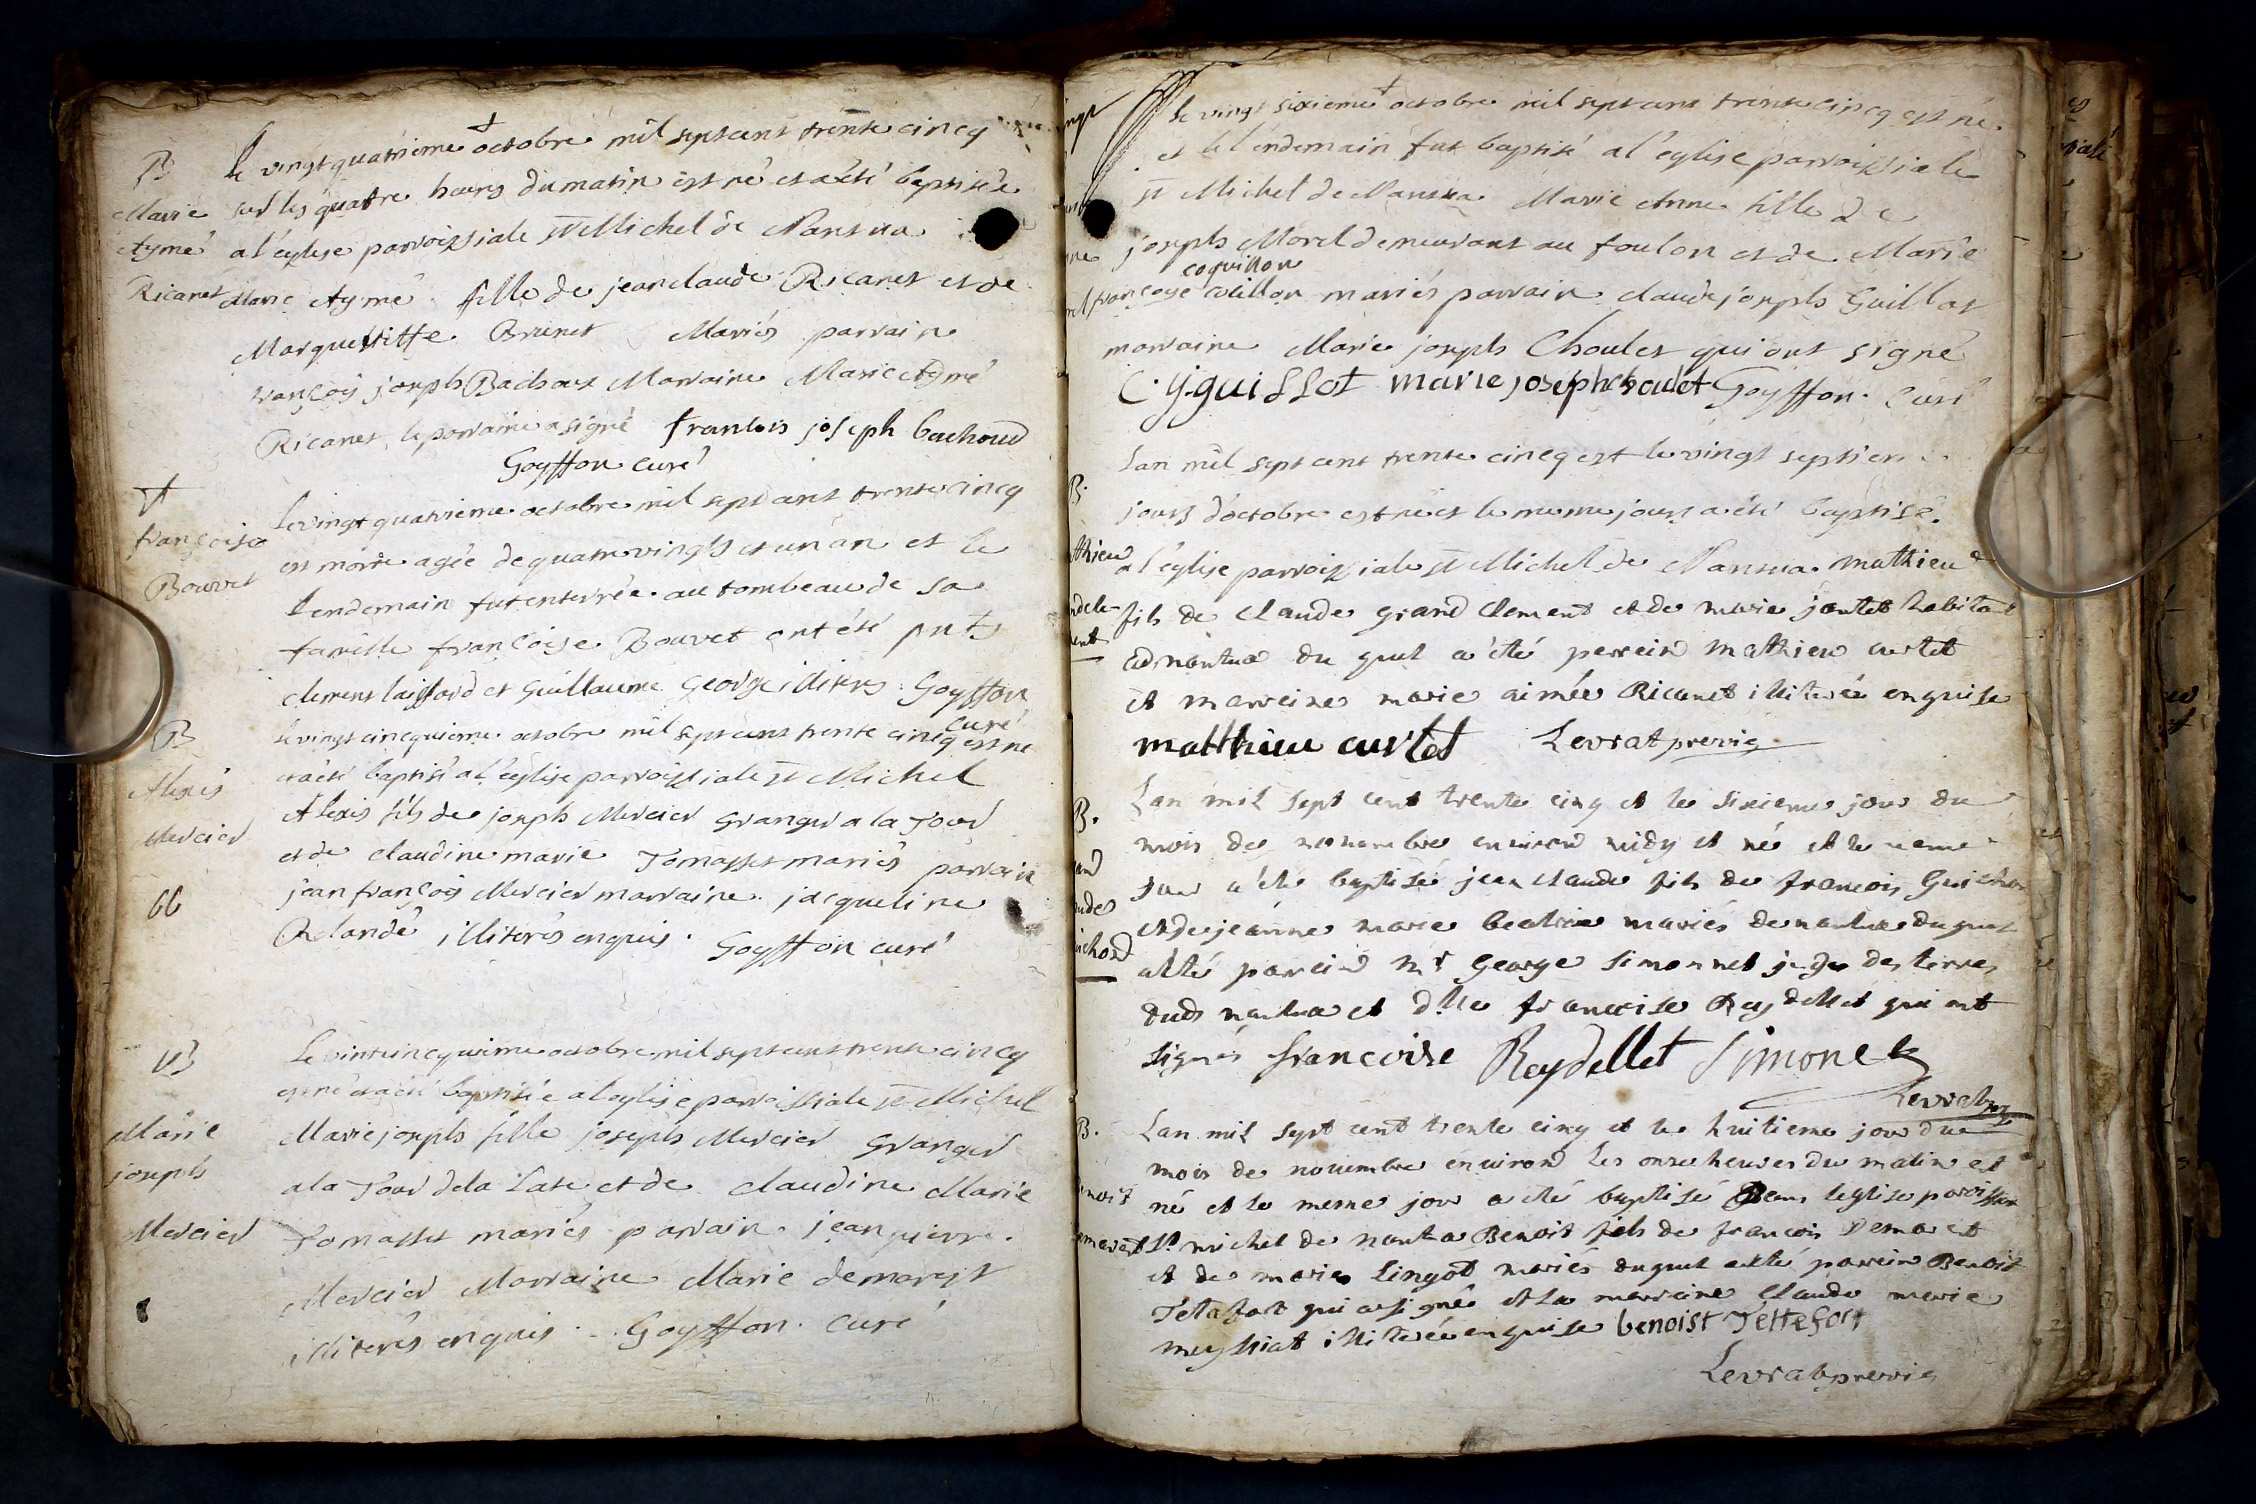 B
Marie
Aymé
Ricanet
Le vingt quatrieme octobre mil sept cent trente cinq
sur les quatre heures du matin est né et a été baptisée
a l'eglise parroissiale st Michel de Nantua
Marie Aymé fille de jean claude Ricanet et de
Brunet Mariés parrain
françois joseph Bachoux Marraine Marie Aymé
Ricanet, le parrain a signé francois joseph bachoud
Goyffon curé
†
françoise
Bouvet
Le vingt quatrieme octobre mil sept cent trente cinq
est morte agée de quatre vingts et un an et le
lendemain fut enterrée au tombeau de sa
famille françoise Bouvet ont été pnts
clement et Guillaume George illitérés Goyffon
curé
B
Alexis
Mercier
66
Le vingt cinquieme octobre mil sept cent trente cinq est né
et a été baptisé a l'eglise parroissiale st Michel
Alexis fils de joseph Mercier Granger a la Tour
et de claudine marie Tomasset mariés parrain
jean françois Mercier marraine jacqueline
Relande illiterés enquis Goyffon curé
B
Marie
joseph
Mercier
Le vint cinquieme octobre mil sept cent trente cinq
est né et a été baptisée a l'eglise parroissiale st Michel
Marie joseph fille joseph Mercier Granger
a la Tour de la et de claudine Marie
Tomasset mariés parrain jean pierre
Mercier Marraine Marie demarest
illiterés enquis Goyffon curé
Le vingt sixieme octobre mil sept cent trente cinq est né
et le lendemain fut baptisé a l'eglise parroissiale
st Michel de Nantua Marie Anne fille de
joseph Morel demeurant au foulon et de Marie
coquillon
françoise mariés parrain claude joseph Guillot
marraine Marie joseph Choulet qui ont signé
C j guillot marie joseph choulet Goyffon curé
B.
thieu
ndcle-
ent
Lan mil sept cent trente cinq est le vingt septiem
jours d'octobre est né et le meme jours a été baptisé
a l'eglise parroissiale st Michel de Nantua mathieu
fils de claude grand clement et de marie joutet habitant
nantua du quel a été parrein mathieu curtet
et marreine marie aimée Ricanet illiterée enquise
matthieu curtet Levrat prevvig
B.
and
aude
ichord
Lan mil sept cent trente cinq et le sixieme jour du
mois de novembre environ midy et né et le meme
jour a été baptisé jean claude fils de francois Guichon
et de jeanne marie beatrix mariés de nantua duquel
a été parrein mr George simonnet juge des terres
dud nantua et dlle francoise Reydellet qui ont
signés francoise Reydellet Simonet
Levrat
B.
enoit
emarest
Lan mil sept cent trente cinq et le huitieme jour du
mois de novembre environ les onze heures du matin est
né et le meme jour a été baptisé dans leglise
st michel de nantua Benoit fils de francois Demarest
et de marie Lingot mariés duquel a été parrein Benoit
Tetafort qui a signé et la marreine claude marie
illiterée enquise benoist Tettefort
Levrat prevvig